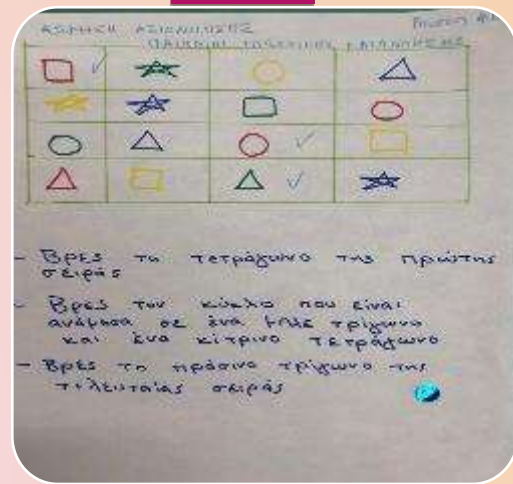 ΑΣΚΗΣΗ ΑΞΙΟΛΟΓΗΣΗΣ
- Βρες το τετράγωνο της πρώτης
σειράς
- Βρες τον κύκλο που είναι
ανάμεσα σε ένα μπλε τρίγωνο
και ένα κίτρινο τετράγωνο
- Βρες το πράσινο τρίγωνο της
τελευταίας σειράς